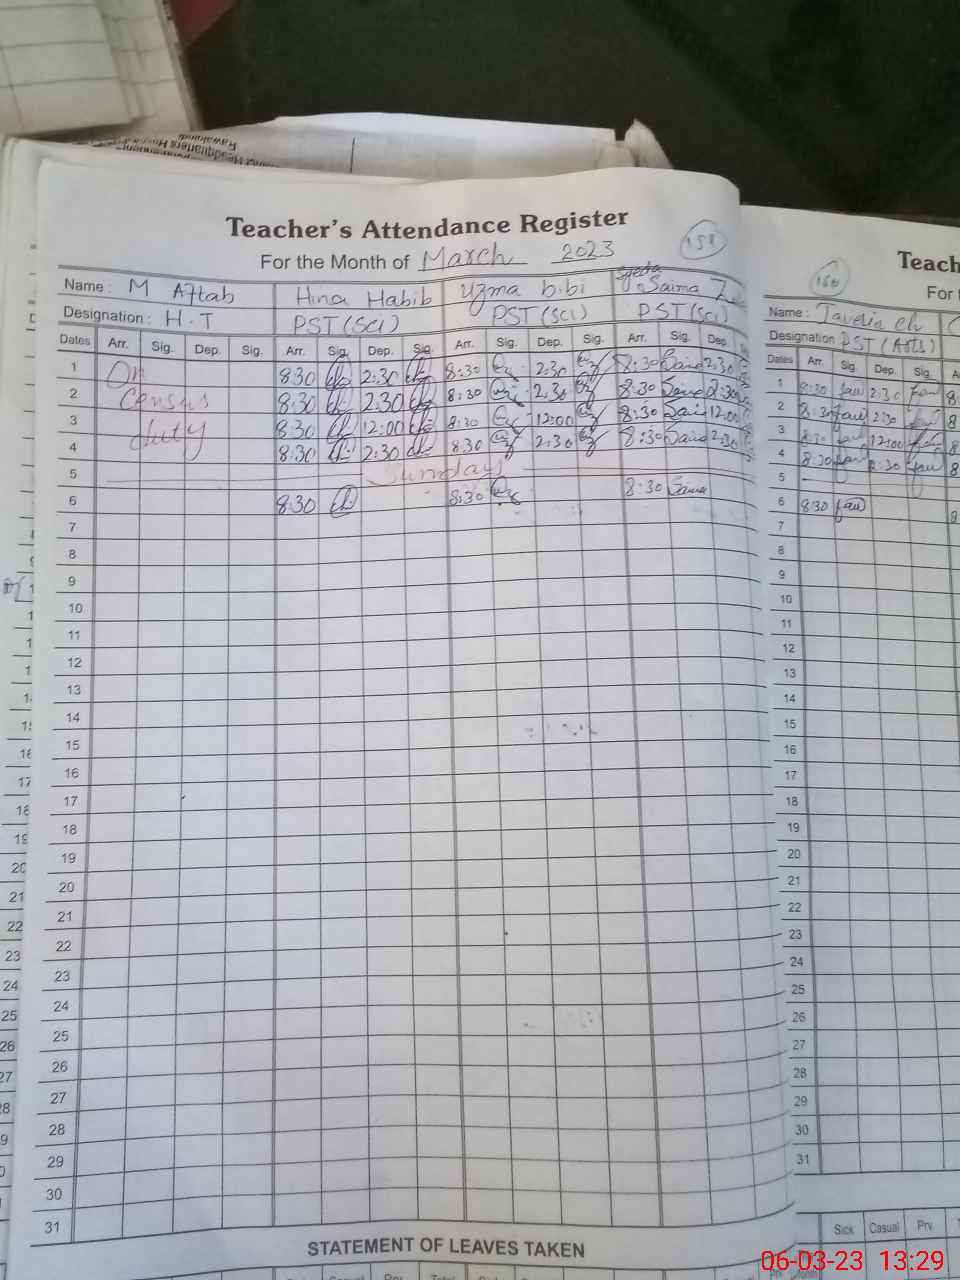 Teacher's Attendance Register
For the Month of March 2023
151
Name: M Aftab Hina Habib Uzma bibi Syeda Saima
Designation: H.T PST (Sci) PST (Sci) PST (Sci)
Dates Arr. Sig. Dep. Sig. Arr. Sig. Dep. Sig. Arr. Sig. Dep. Sig. Arr. Sig. Dep.
1 On 8:30 2:30 8:30 2:30 8:30 Saima 2:30
2 Census 8:30 2:30 8:30 2:30 8:30 Saima 2:30
3 duty 8:30 12:00 8:30 12:00 8:30 Saima 12:00
4 8:30 2:30 8:30 2:30 8:30 Saima 2:30
5 Sunday
6 8:30 8:30 8:30 Saima
7
8
9
10
11
12
13
14
15
16
17
18
19
20
21
22
23
24
25
26
27
28
29
30
31
STATEMENT OF LEAVES TAKEN
Teach
For
160
Name:
Designation PST (Arts)
Dates Arr. Sig. Dep. Sig.
1 8:30 2:30
2 8:30 2:30
3 8:30 12:00
4 8:30 2:30
5
6 8:30
7
8
9
10
11
12
13
14
15
16
17
18
19
20
21
22
23
24
25
26
27
28
29
30
31
Sick Casual Prv.
06-03-23 13:29